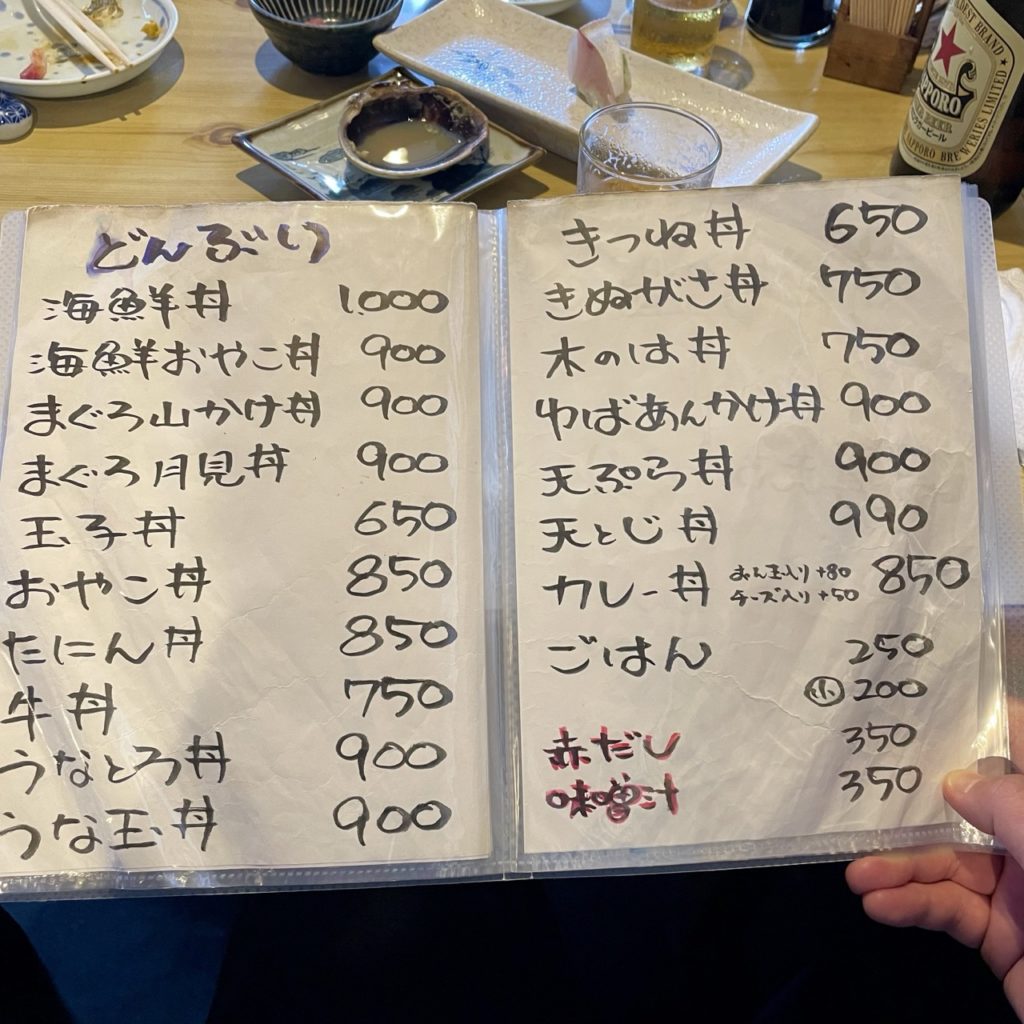 どんぶり
海鮮丼 1,000
海鮮おやこ丼 900
まぐろ山かけ丼 900
まぐろ月見丼 900
玉子丼 650
おやこ丼 850
たにん丼 850
牛丼 750
うなとろ丼 900
うな玉丼 900
きつね丼 650
きぬがさ丼 750
木のは丼 750
ゆばあんかけ丼 900
天ぷら丼 900
天とじ丼 990
カレー丼 850
おん玉入り +80
チーズ入り +50
ごはん 250
小 200
赤だし 350
味噌汁 350
OLDEST BRAND
SAPPORO
SAPPORO BREWERIES LIMITED